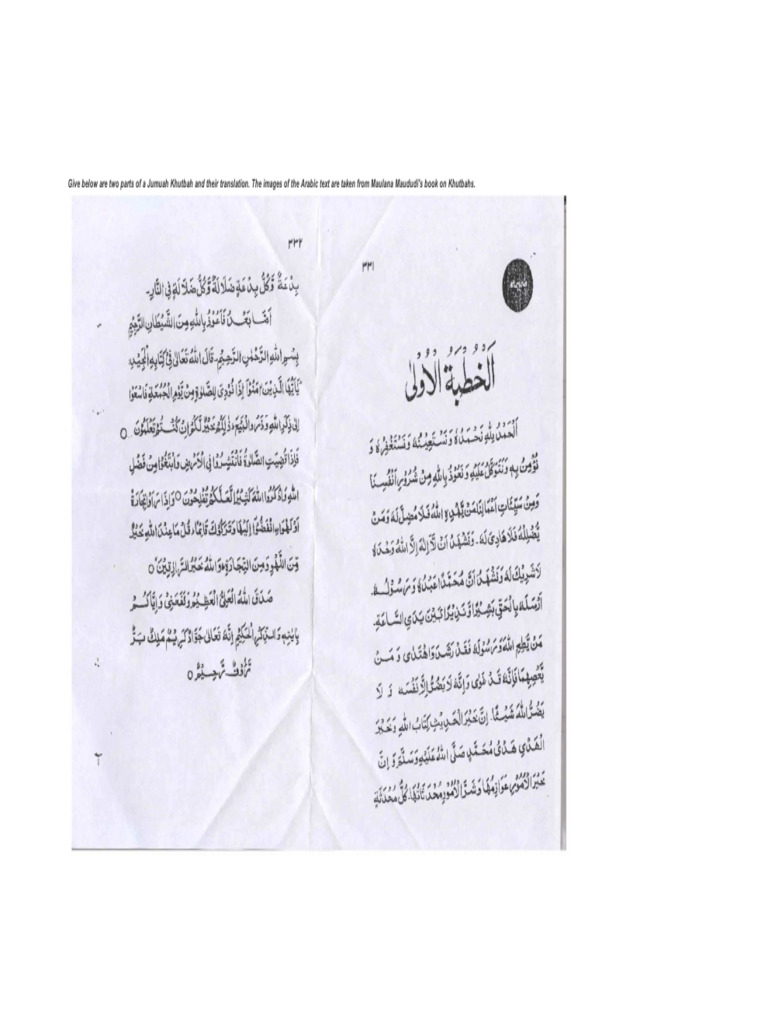 Give below are two parts of a Jumuah Khutbah and their translation. The images of the Arabic text are taken from Maulana Maududi's book on Khutbahs.
٣٣١
اَلْخُطْبَةُ الْاُوْلٰی
اَلْحَمْدُ لِلّٰهِ نَحْمَدُهٗ وَنَسْتَعِیْنُهٗ وَنَسْتَغْفِرُهٗ وَ
نُؤْمِنُ بِهٖ وَنَتَوَكَّلُ عَلَیْهِ وَنَعُوْذُ بِاللّٰهِ مِنْ شُرُوْرِ اَنْفُسِنَا
وَمِنْ سَیِّئَاتِ اَعْمَالِنَا مَنْ یَّهْدِهِ اللّٰهُ فَلَا مُضِلَّ لَهٗ وَمَنْ
یُّضْلِلْهُ فَلَا هَادِیَ لَهٗ۔ وَنَشْهَدُ اَنْ لَّا اِلٰهَ اِلَّا اللّٰهُ وَحْدَهٗ
لَا شَرِیْكَ لَهٗ وَنَشْهَدُ اَنَّ مُحَمَّدًا عَبْدُهٗ وَرَسُوْلُهٗ۔
اَرْسَلَهٗ بِالْحَقِّ بَشِیْرًا وَّنَذِیْرًا بَیْنَ یَدَیِ السَّاعَةِ۔
مَنْ یُّطِعِ اللّٰهَ وَرَسُوْلَهٗ فَقَدْ رَشَدَ وَاهْتَدٰی وَمَنْ
یَّعْصِهِمَا فَاِنَّهٗ قَدْ غَوٰی وَاِنَّهٗ لَا یَضُرُّ اِلَّا نَفْسَهٗ وَلَا
یَضُرُّ اللّٰهَ شَیْئًا۔ اِنَّ خَیْرَ الْحَدِیْثِ كِتَابُ اللّٰهِ وَخَیْرَ
الْهَدْیِ هَدْیُ مُحَمَّدٍ صَلَّی اللّٰهُ عَلَیْهِ وَسَلَّمَ وَاِنَّ
خَیْرَ الْاُمُوْرِ عَوَازِمُهَا وَشَرَّ الْاُمُوْرِ مُحْدَثَاتُهَا۔ كُلُّ مُحْدَثَةٍ
٣٣٢
بِدْعَةٌ وَّكُلُّ بِدْعَةٍ ضَلَالَةٌ وَّكُلُّ ضَلَالَةٍ فِی النَّارِ۔
اَمَّا بَعْدُ فَاَعُوْذُ بِاللّٰهِ مِنَ الشَّیْطَانِ الرَّجِیْمِ
بِسْمِ اللّٰهِ الرَّحْمٰنِ الرَّحِیْمِ۔ قَالَ اللّٰهُ تَعَالٰی فِیْ كِتَابِهِ الْمَجِیْدِ:
یٰاَیُّهَا الَّذِیْنَ اٰمَنُوْا اِذَا نُوْدِیَ لِلصَّلٰوةِ مِنْ یَّوْمِ الْجُمُعَةِ فَاسْعَوْا
اِلٰی ذِكْرِ اللّٰهِ وَذَرُوا الْبَیْعَ ذٰلِكُمْ خَیْرٌ لَّكُمْ اِنْ كُنْتُمْ تَعْلَمُوْنَ ○
فَاِذَا قُضِیَتِ الصَّلٰوةُ فَانْتَشِرُوْا فِی الْاَرْضِ وَابْتَغُوْا مِنْ فَضْلِ
اللّٰهِ وَاذْكُرُوا اللّٰهَ كَثِیْرًا لَّعَلَّكُمْ تُفْلِحُوْنَ ○ وَاِذَا رَاَوْا تِجَارَةً
اَوْ لَهْوَا انْفَضُّوْا اِلَیْهَا وَتَرَكُوْكَ قَآئِمًا قُلْ مَا عِنْدَ اللّٰهِ خَیْرٌ
مِّنَ اللَّهْوِ وَمِنَ التِّجَارَةِ وَاللّٰهُ خَیْرُ الرَّازِقِیْنَ ○
صَدَقَ اللّٰهُ الْعَلِیُّ الْعَظِیْمُ وَنَفَعَنِیْ وَاِیَّاكُمْ
بِاٰیٰتِهٖ وَالذِّكْرِ الْحَكِیْمِ اِنَّهٗ تَعَالٰی جَوَّادٌ كَرِیْمٌ مَّلِكٌ بَرٌّ
رَّؤُوْفٌ رَّحِیْمٌ ○